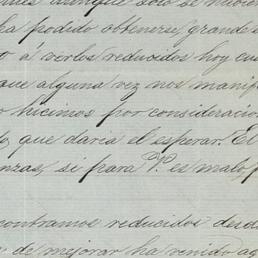 aunque solo se
ha podido obtenerse, grande
á verlos reducidos hoy
que alguna vez nos
hicimos por consideracion
que daria el esperar. El
si para V. es malo
contramos reducidos desde
de mejorar ha venido